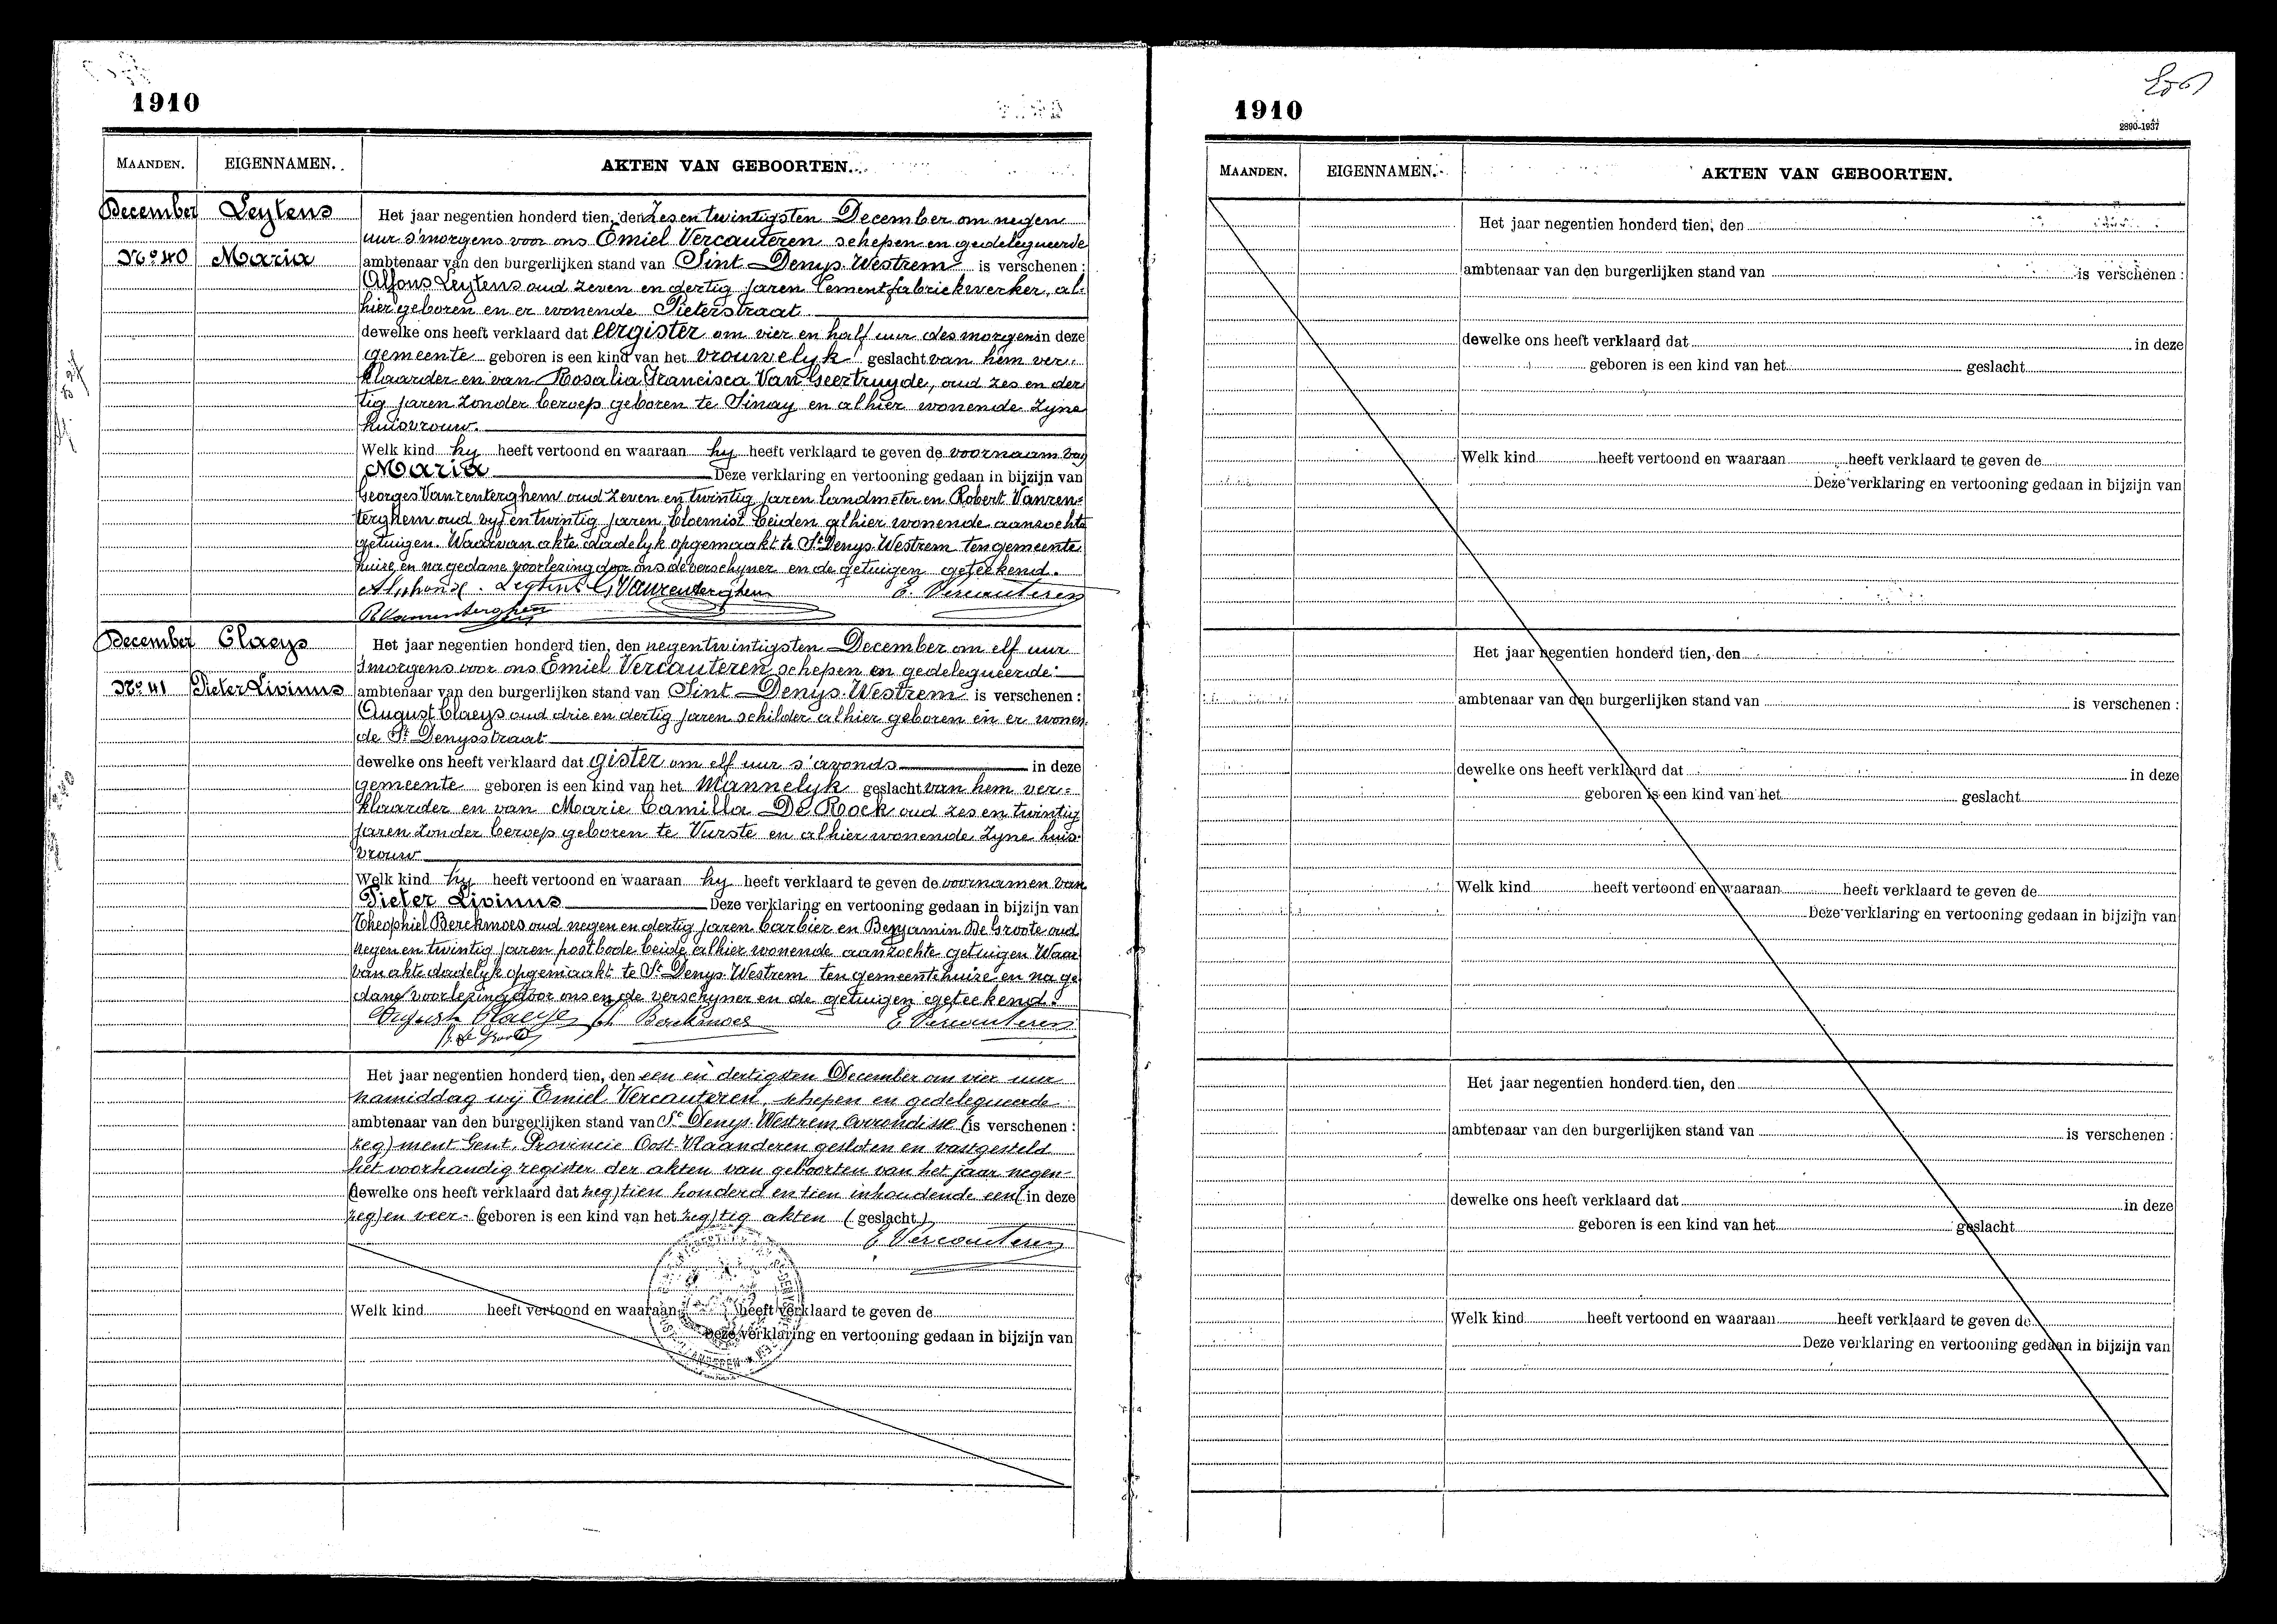 1910
MAANDEN.
EIGENNAMEN.
AKTEN VAN GEBOORTEN.
December
Leytens
Het jaar negentien honderd tien, den Zes en twintigsten December om negen
uur s'morgens voor ons Emiel Vercauteren schepen en gedelegueerde
No 40
Maria
ambtenaar van den burgerlijken stand van Sint Denys-Westrem is verschenen :
Alfons Leytens oud zeven en dertig jaren Cementfabriekwerker, al-
hier geboren en er wonende Pieterstraat
dewelke ons heeft verklaard dat eergister om vier en half uur des morgens in deze
gemeente geboren is een kind van het vrouwelyk geslacht van hem ver-
klaarder en van Rosalia Francisca Van Geertruyde, oud zes en der
tig jaren zonder beroep geboren te Sinay en alhier wonende zyne
huisvrouw.
Welk kind hy heeft vertoond en waaraan hy heeft verklaard te geven de voornaam van
Maria Deze verklaring en vertooning gedaan in bijzijn van
Georges Vanrenterghem oud zeven en twintig jaren landmeter en Robert Vanren=
terghem oud vyf en twintig jaren bloemist beiden alhier wonende aanzochte
getuigen. Waarvan akte dadelyk opgemaakt te St Denys-Westrem ten gemeente
huize en na gedane voorlezing door ons de verschyner en de getuigen geteekend.
Alphonse Leytens G. Vanrenterghem E. Vercauteren
R Vanrenterghem
December
Claeys
Het jaar negentien honderd tien, den negentwintigsten December om elf uur
smorgens voor ons Emiel Vercauteren schepen en gedelegueerde
No 41
Pieter Livinus
ambtenaar van den burgerlijken stand van Sint Denys-Westrem is verschenen :
August Claeys oud drie en dertig jaren schilder alhier geboren en er wonen-
de St Denysstraat
dewelke ons heeft verklaard dat gister om elf uur s'avonds in deze
gemeente geboren is een kind van het Mannelyk geslacht van hem ver-
klaarder en van Marie Camilla De Roock oud zes en twintig
jaren zonder beroep geboren te Vurste en alhier wonende zyne huis-
vrouw
Welk kind hy heeft vertoond en waaraan hy heeft verklaard te geven de voornamen van
Pieter Livinus Deze verklaring en vertooning gedaan in bijzijn van
Theophiel Berckmoes oud negen en dertig jaren barbier en Benjamin De Groote oud
negen en twintig jaren postbode beide alhier wonende aanzochte getuigen Waar
van akte dadelyk opgemaakt te St Denys-Westrem ten gemeentehuize en na ge
dane voorlezing door ons en de verschyner en de getuigen geteekend.
August Claeys Berckmoes E Vercauteren
B. de Groote
Het jaar negentien honderd tien, den een en dertigsten December om vier uur
namiddag wij Emiel Vercauteren, schepen en gedelegueerde
ambtenaar van den burgerlijken stand van St Denys-Westrem Arrondisse (is verschenen :
zeg) ment Gent, Provincie Oost-Vlaanderen gesloten en vastgesteld
het voorhandig register der akten van geboorten van het jaar negen-
(dewelke ons heeft verklaard dat zeg) tien honderd en tien inhoudende een (in deze
zeg) en veer- (geboren is een kind van het zeg) tig akten (geslacht)
E Vercauteren
Welk kind heeft vertoond en waaraan heeft verklaard te geven de
Deze verklaring en vertooning gedaan in bijzijn van
1910
2890-1937
MAANDEN.
EIGENNAMEN.
AKTEN VAN GEBOORTEN.
Het jaar negentien honderd tien, den
ambtenaar van den burgerlijken stand van is verschenen :
dewelke ons heeft verklaard dat in deze
geboren is een kind van het geslacht
Welk kind heeft vertoond en waaraan heeft verklaard te geven de
Deze verklaring en vertooning gedaan in bijzijn van
Het jaar negentien honderd tien, den
ambtenaar van den burgerlijken stand van is verschenen :
dewelke ons heeft verklaard dat in deze
geboren is een kind van het geslacht
Welk kind heeft vertoond en waaraan heeft verklaard te geven de
Deze verklaring en vertooning gedaan in bijzijn van
Het jaar negentien honderd tien, den
ambtenaar van den burgerlijken stand van is verschenen :
dewelke ons heeft verklaard dat in deze
geboren is een kind van het geslacht
Welk kind heeft vertoond en waaraan heeft verklaard te geven de
Deze verklaring en vertooning gedaan in bijzijn van